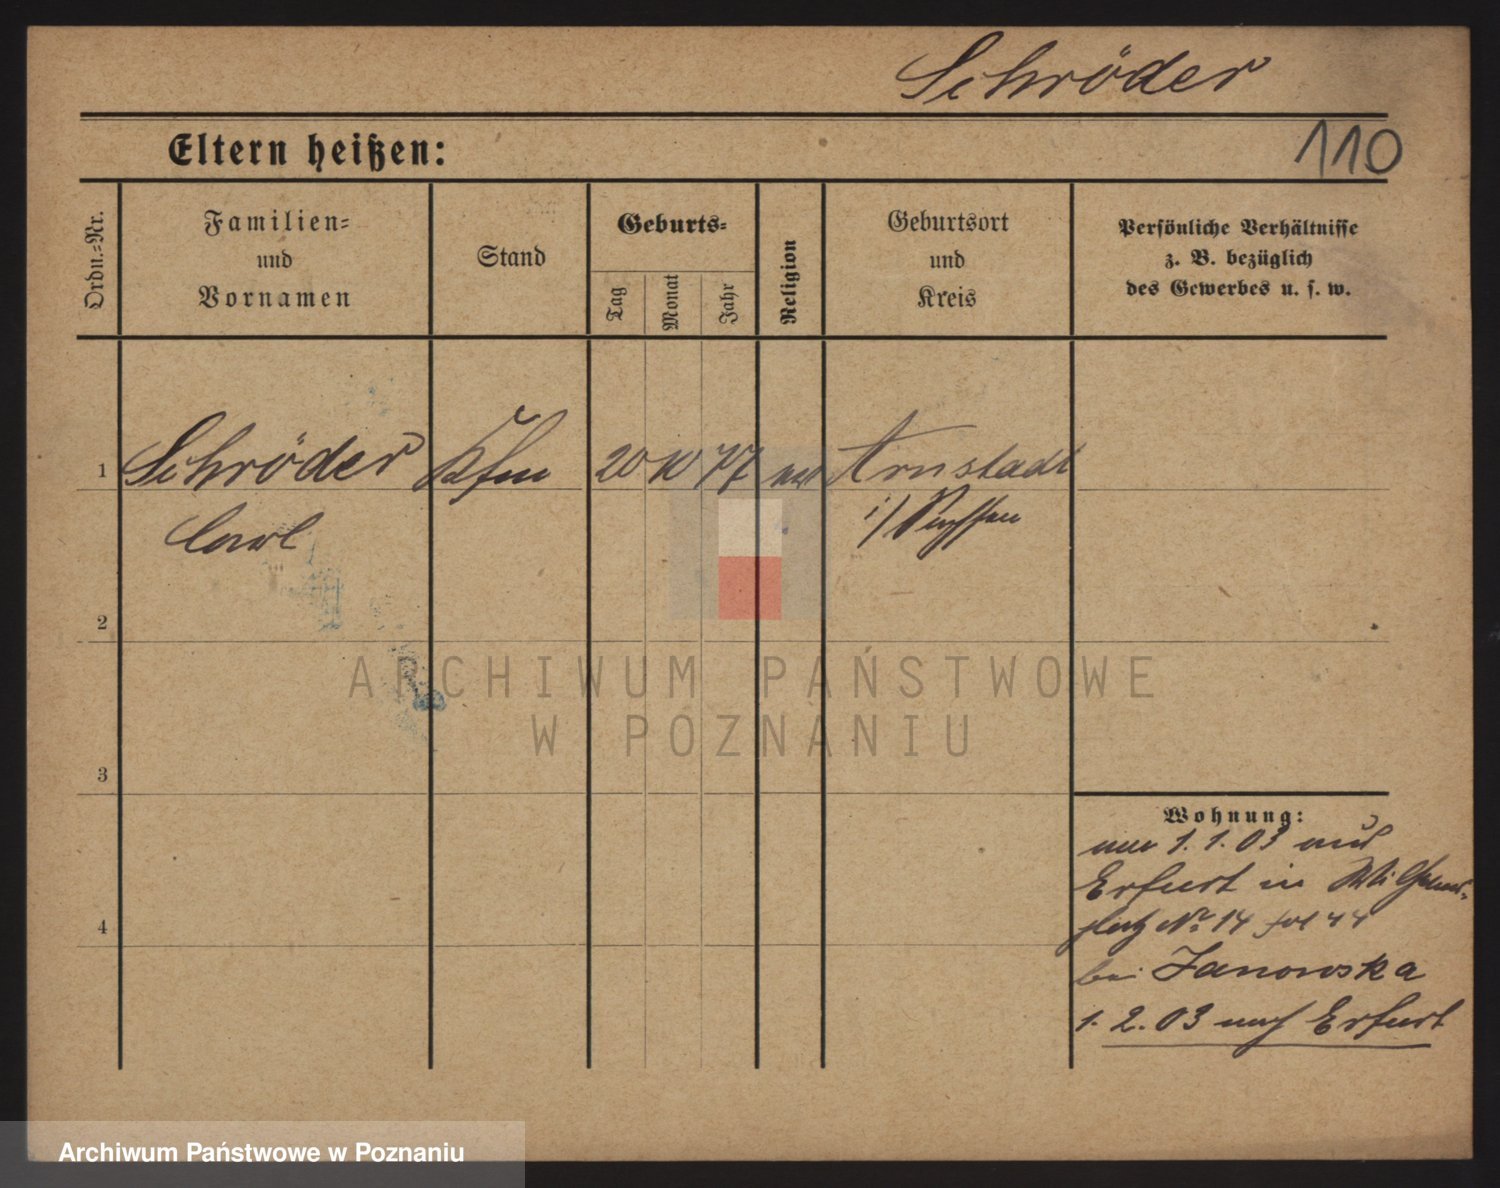 Schröder
110
Eltern heißen:
Ordn.-Nr.
Familien-
und
Vornamen
Stand
Geburts-
Tag
Monat
Jahr
Religion
Geburtsort
und
Kreis
Persönliche Verhältnisse
z. B. bezüglich
des Gewerbes u. s. w.
1 Schröder Kfm 20 10 77 Arnstadt
Carl
i/
2
3
4
Wohnung:
1.1.03 aus
Erfurt in Wilhelms-
platz No. 14
bei Janowska
1.2.03 nach Erfurt
ARCHIWUM PAŃSTWOWE
W POZNANIU
Archiwum Państwowe w Poznaniu